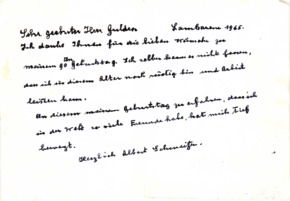 Sehr geehrter Herr Gulden Lambarene 1965.
Ich danke Ihnen für die lieben Wünsche zu
meinem 90ten Geburtstag. Ich selber kann es nicht fassen,
dass ich in diesem Alter noch rüstig bin und Arbeit
leisten kann.
An diesem meinem Geburtstag zu erfahren, dass ich
in der Welt so viele Freunde habe, hat mich tief
bewegt.
Herzlich Albert Schweitzer.